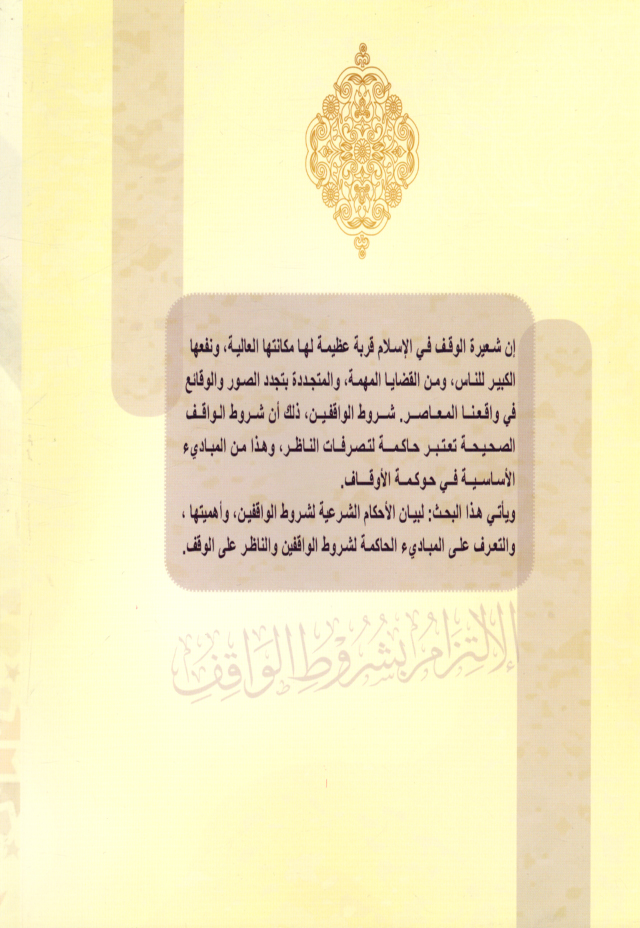 إن شعيرة الوقف في الإسلام قربة عظيمة لها مكانتها العالية، ونفعها
الكبير للناس، ومن القضايا المهمة، والمتجددة بتجدد الصور والوقائع
في واقعنا المعاصر. شروط الواقفين، ذلك أن شروط الواقف
الصحيحة تعتبر حاكمة لتصرفات الناظر، وهذا من المباديء
الأساسية في حوكمة الأوقاف.
ويأتي هذا البحث: لبيان الأحكام الشرعية لشروط الواقفين، وأهميتها ،
والتعرف على المباديء الحاكمة لشروط الواقفين والناظر على الوقف.
الإلتزام بشروط الواقف